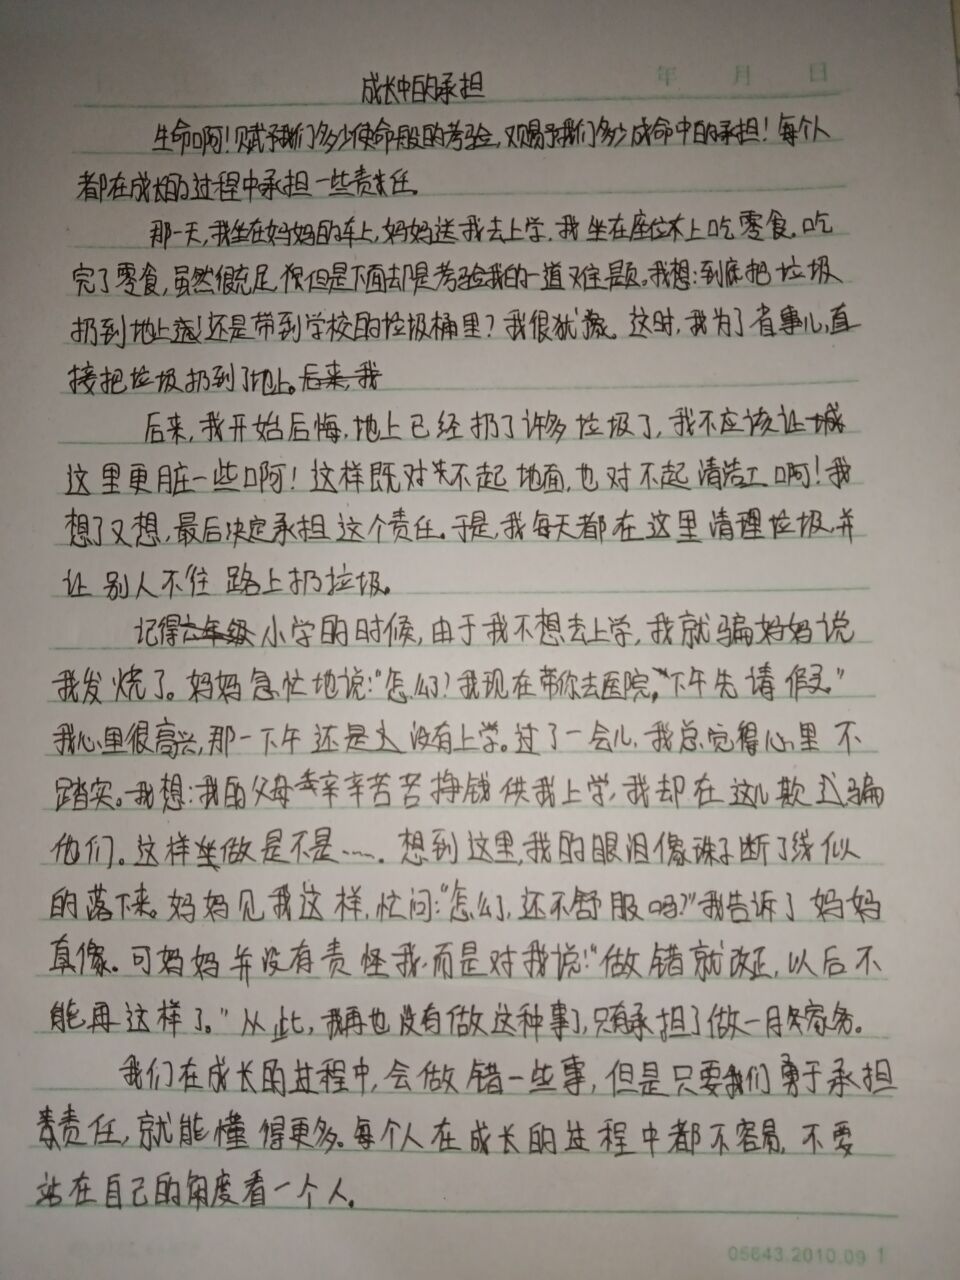 年 月 日
成长中的承担
生命啊!赋予我们多少使命般的考验,又赐予我们多少成命中的承担!每个人
都在成长的过程中承担一些责任。
那一天,我坐在妈妈的车上,妈妈送我去上学,我坐在座位上吃零食。吃
完了零食,虽然很充足,但是下面却是考验我的一道难题。我想:到底把垃圾
扔到地上还是带到学校的垃圾桶里?我很犹豫。这时,我为了省事儿,直
接把垃圾扔到了地上。后来,我
后来,我开始后悔,地上已经扔了许多垃圾了,我不应该让
这里更脏一些啊!这样既对不起地面,也对不起清洁工啊!我
想了又想,最后决定承担这个责任。于是,我每天都在这里清理垃圾,并
让别人不往路上扔垃圾。
记得六年级小学的时候,由于我不想去上学,我就骗妈妈说
我发烧了。妈妈急忙地说:“怎么了?我现在带你去医院,下午先请假。”
我心里很高兴,那一下午还是没有上学。过了一会儿,我总觉得心里不
踏实。我想:我的父母辛辛苦苦挣钱供我上学,我却在这儿欺骗
他们。这样做是不是……。想到这里,我的眼泪像珠子断了线似
的落下来。妈妈见我这样,忙问:“怎么了,还不舒服吗?”我告诉了妈妈
真像。可妈妈并没有责怪我,而是对我说:“做错就改正,以后不
能再这样了。”从此,我再也没有做这种事了,只有承担了做一月家务。
我们在成长的过程中,会做错一些事,但是只要我们勇于承担
责任,就能懂得更多。每个人在成长的过程中都不容易,不要
站在自己的角度看一个人。
05643.2010.09 1